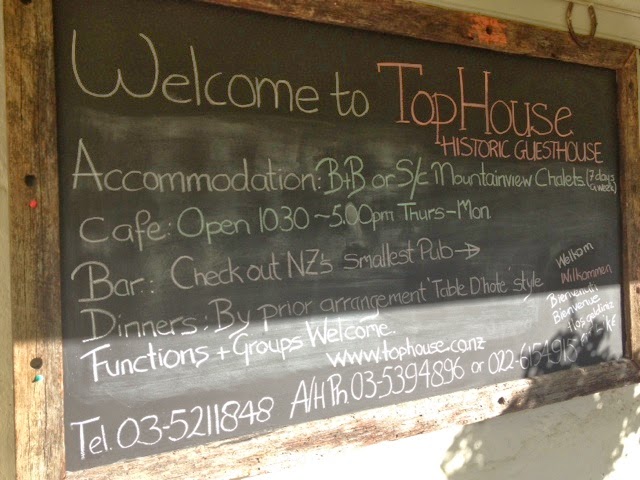 Welcome to TopHouse
HISTORIC GUESTHOUSE
Accommodation: B+B or S/C Mountainview Chalets. (7 days a week)
Cafe: Open 1030 ~ 5.00pm Thurs-Mon.
Bar: Check out NZ's smallest Pub →
Dinners: By prior arrangement 'Table D'hote' style
Functions + Groups Welcome.
www.tophouse.co.nz
Tel. 03-5211848 A/H Ph 03-5394896 or 022-6154915
Welkom
Willkommen
Benvenuti
Bienvenue
Hos geldiniz